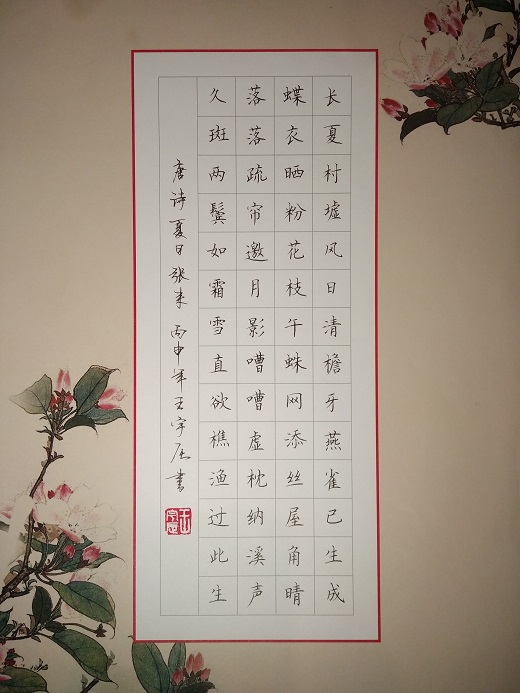 长夏村墟风日清檐牙燕雀已生成
蝶衣晒粉花枝午蛛网添丝屋角晴
落落疏帘邀月影嘈嘈虚枕纳溪声
久斑两鬓如霜雪直欲樵渔过此生
唐诗夏日张耒丙申年王宇庭书